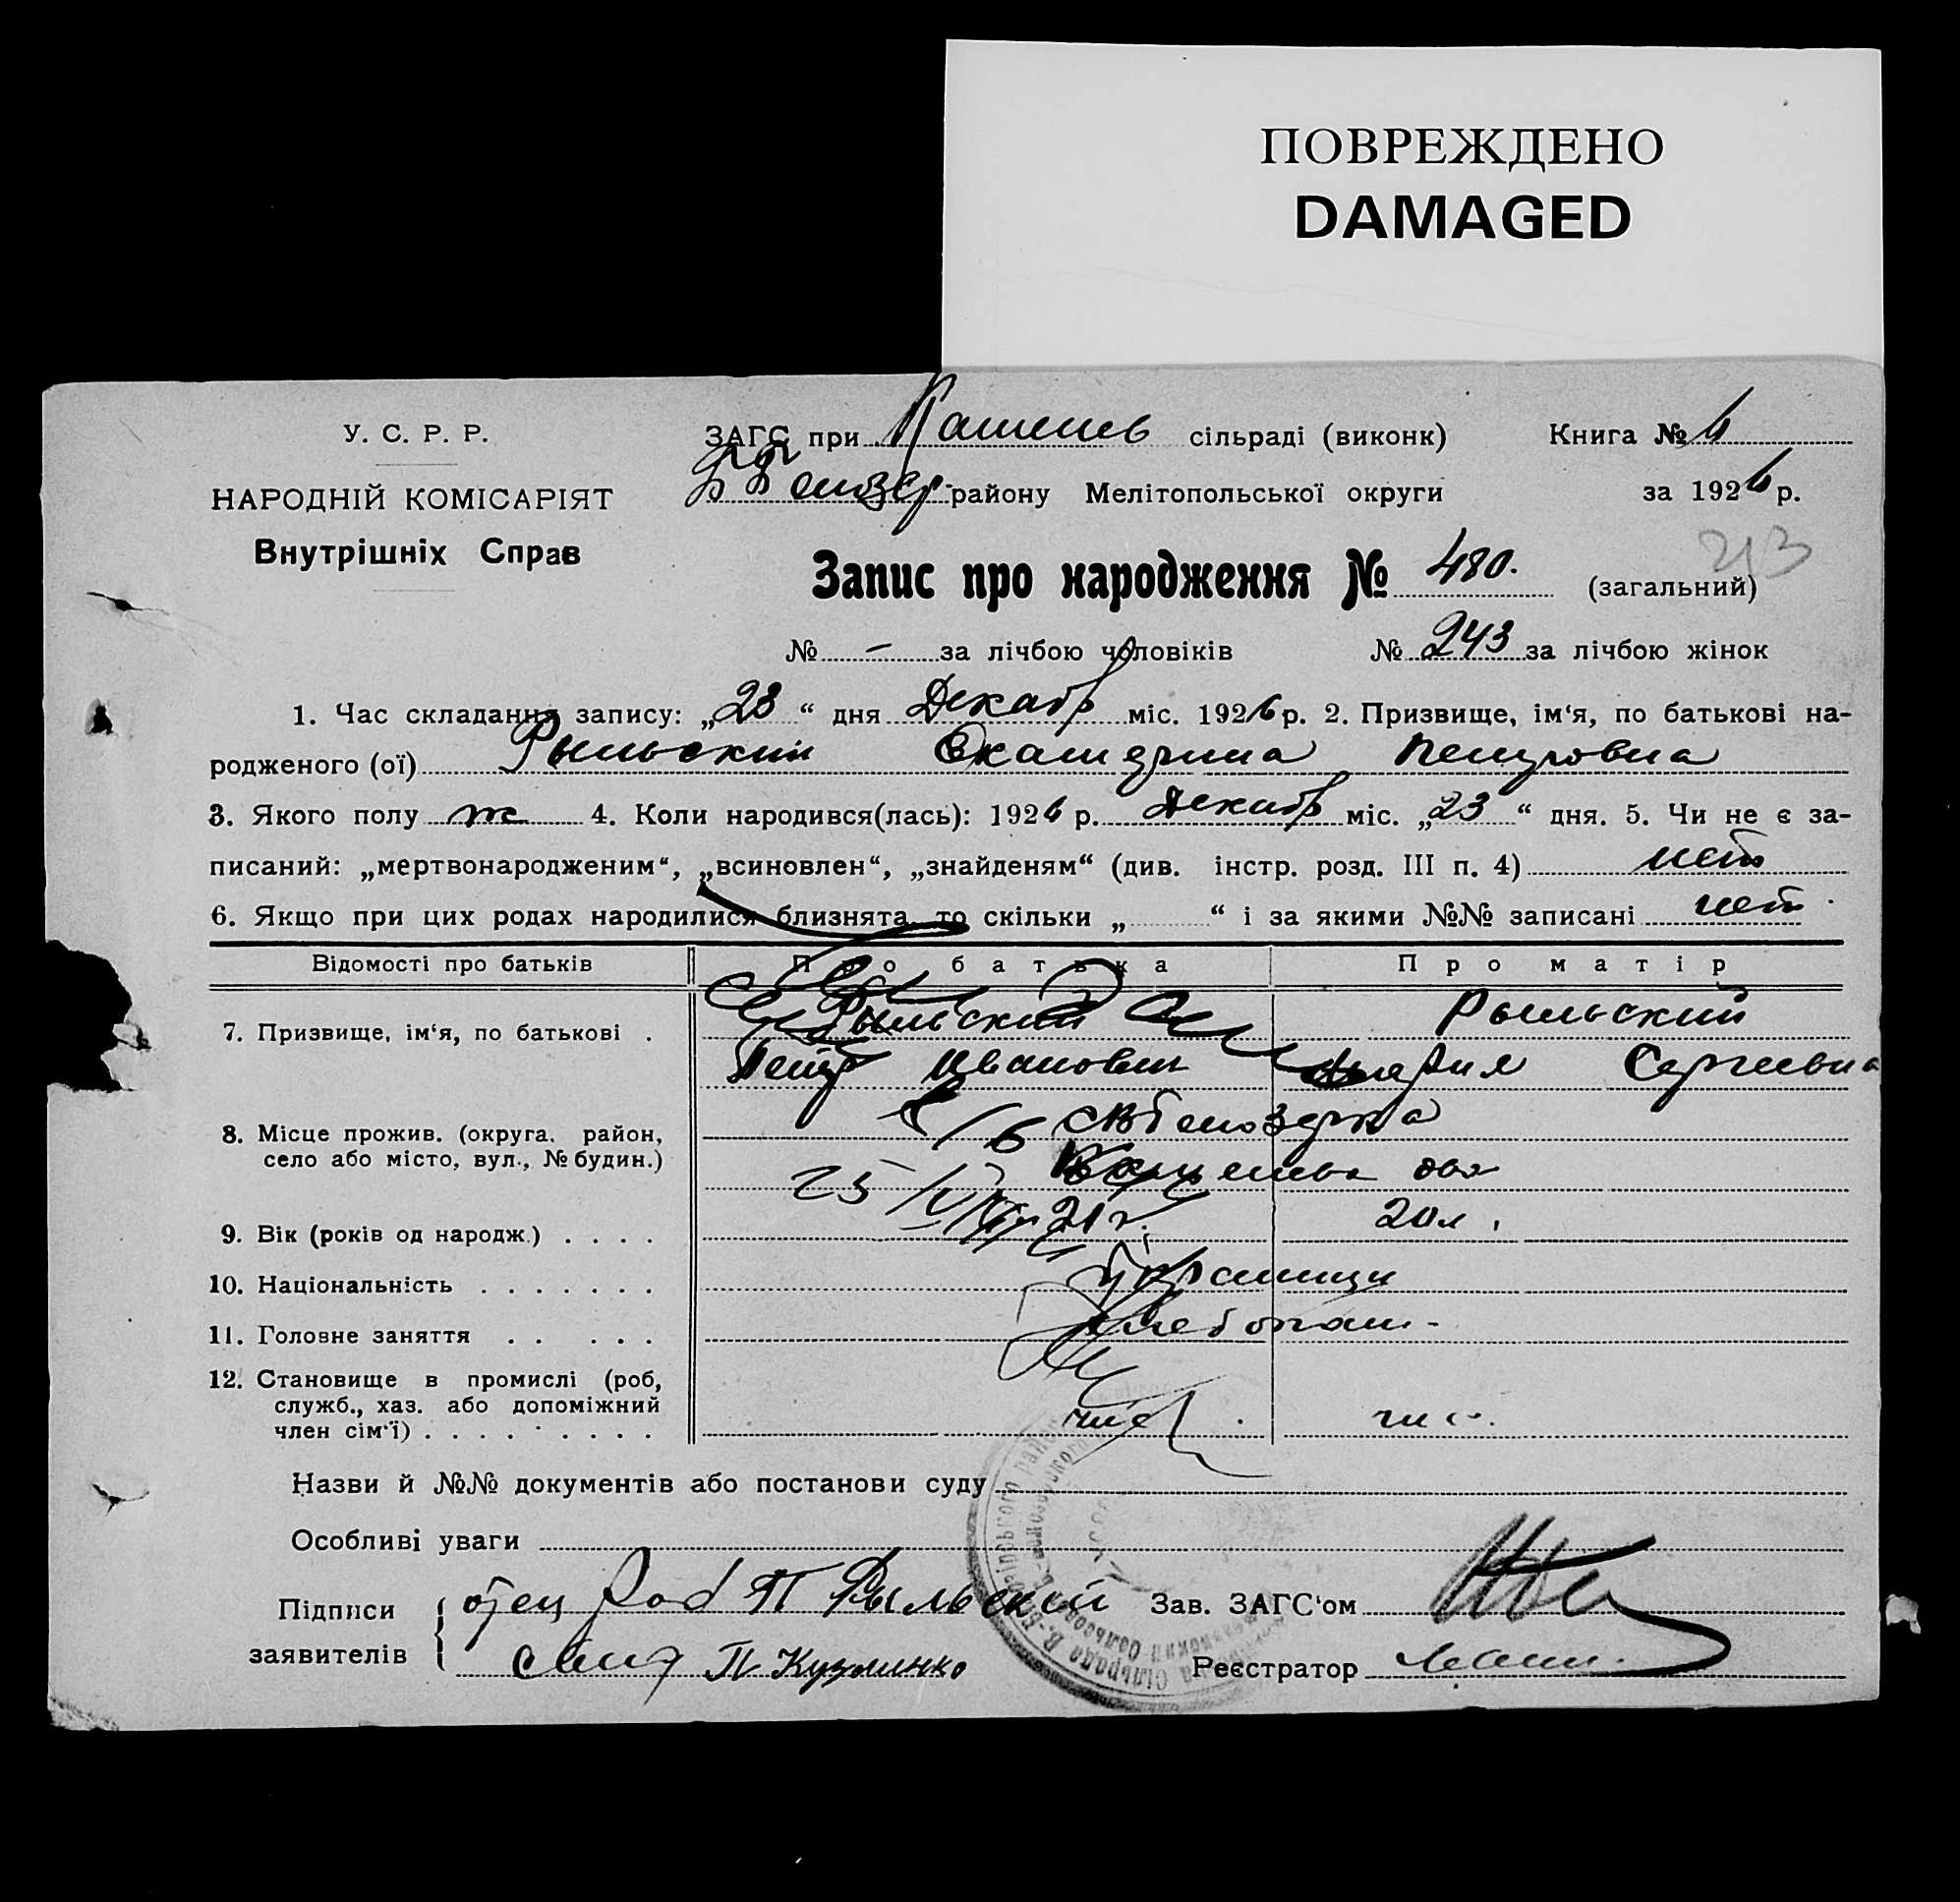 ПОВРЕЖДЕНО
DAMAGED
У. С. Р. Р.
НАРОДНІЙ КОМІСАРІЯТ
Внутрішніх Справ
ЗАГС при сільраді (виконк) Книга № 6
району Мелітопольської округи за 1926 р.
Запис про народження № 480. (загальний)
243
№ – за лічбою чоловіків № 243 за лічбою жінок
1. Час складання запису: „23“ дня Декабр міс. 1926 р. 2. Призвище, ім‘я, по батькові на-
родженого (ої) Рыльский Екатерина Петровна
3. Якого полу ж 4. Коли народився(лась): 1926 р. Декабр міс. „23“ дня. 5. Чи не є за-
писаний: „мертвонародженим“, „всиновлен“, „знайденям“ (див. інстр. розд. III п. 4) нет
6. Якщо при цих родах народилися близнята, то скільки „ “ і за якими №№ записані нет
Відомості про батьків Про батька Про матір
7. Призвище, ім‘я, по батькові . Рыльский Рыльский
Петр Иванович Мария Сергеевна
8. Місце прожив. (округа, район,
село або місто, вул., № будин.)
9. Вік (років од народж.) . . . . 21 г. 20 л.
10. Національність . . . . . . . Украинцы
11. Головне заняття . . . . . Хлебопаш-
12. Становище в промислі (роб,
служб., хаз. або допоміжний
член сім‘ї) . . . . . . . . .
Назви й №№ документів або постанови суду
Особливі уваги
Підписи отец П Рыльский Зав. ЗАГС‘ом
заявителів П Кузьминко Реєстратор